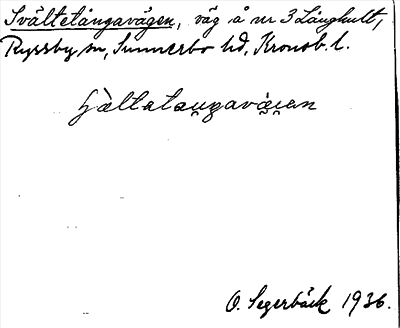 Svältetångavägen, väg å nr 3 Långhult,
Ryssby sn, Sunnerbo hd, Kronob. l.
O. Segerbäck 1936.